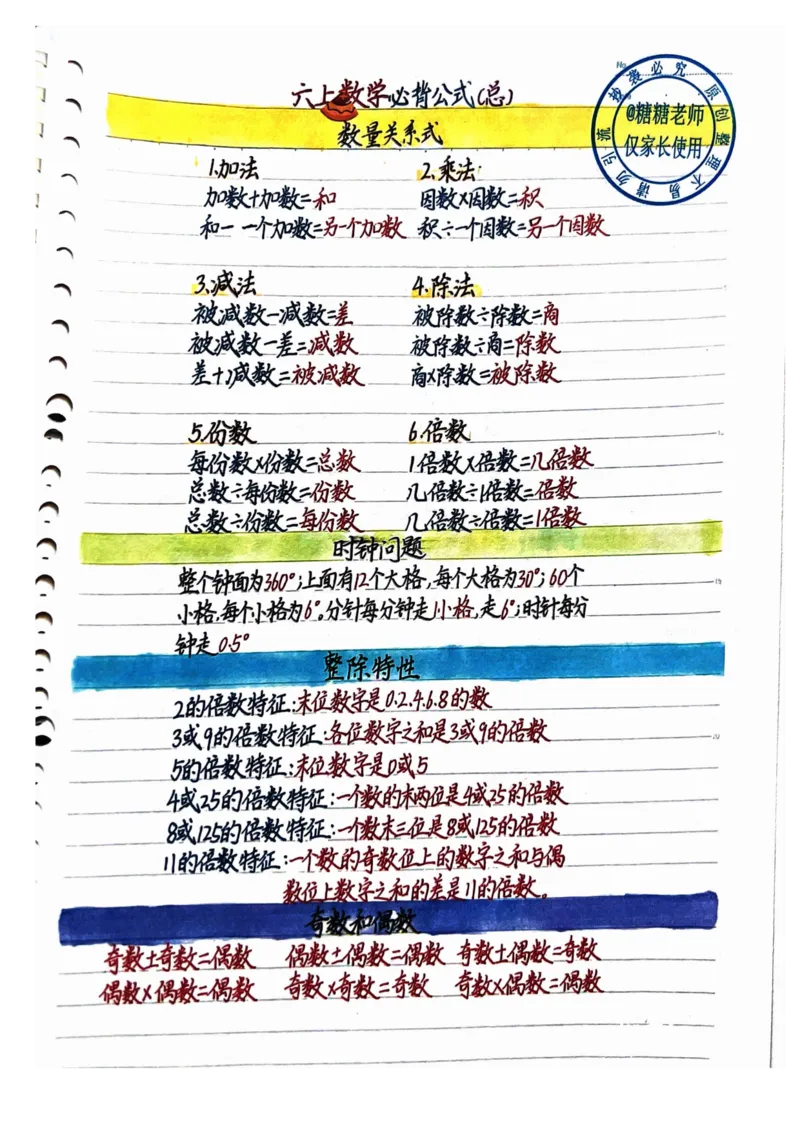 No.
六上数学必背公式(总)
抄袭必究 原创整理不易 请勿引流
@糖糖老师
仅家长使用
数量关系式
1.加法 2.乘法
加数+加数=和 因数×因数=积
和-一个加数=另一个加数 积÷一个因数=另一个因数
3.减法 4.除法
被减数-减数=差 被除数÷除数=商
被减数-差=减数 被除数÷商=除数
差+减数=被减数 商×除数=被除数
5.份数 6.倍数
每份数×份数=总数 1倍数×倍数=几倍数
总数÷每份数=份数 几倍数÷1倍数=倍数
总数÷份数=每份数 几倍数÷倍数=1倍数
时钟问题
整个钟面为360°;上面有12个大格,每个大格为30°;60个
小格,每个小格为6°。分针每分钟走1小格,走6°;时针每分
钟走0.5°
整除特性
2的倍数特征:末位数字是0.2.4.6.8的数
3或9的倍数特征:各位数字之和是3或9的倍数
5的倍数特征:末位数字是0或5
4或25的倍数特征:一个数的末两位是4或25的倍数
8或125的倍数特征:一个数末三位是8或125的倍数
11的倍数特征:一个数的奇数位上的数字之和与偶
数位上数字之和的差是11的倍数。
奇数和偶数
奇数±奇数=偶数 偶数±偶数=偶数 奇数±偶数=奇数
偶数×偶数=偶数 奇数×奇数=奇数 奇数×偶数=偶数